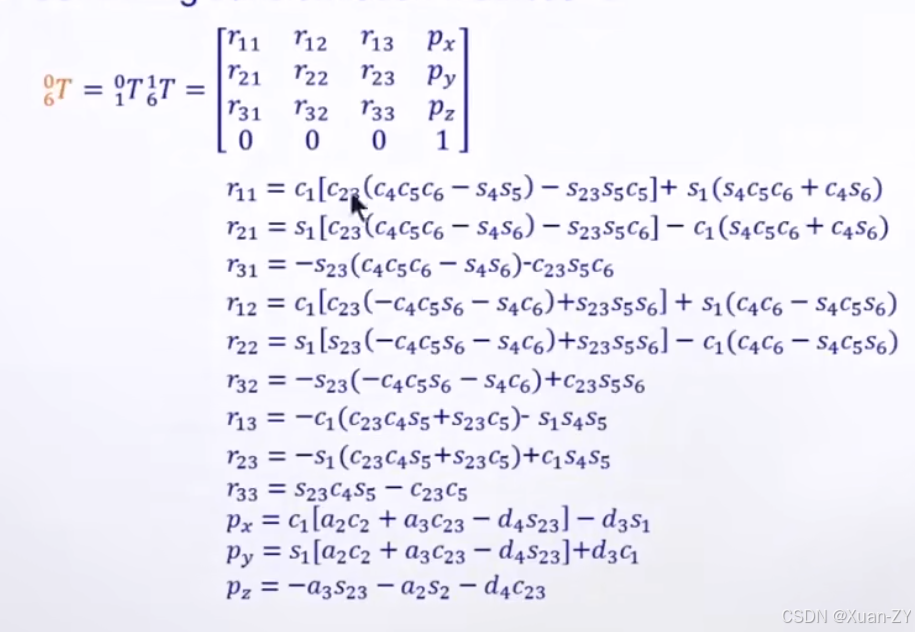 ⁰₆T = ⁰₁T¹₆T = [r₁₁ r₁₂ r₁₃ pₓ
r₂₁ r₂₂ r₂₃ p_y
r₃₁ r₃₂ r₃₃ p_z
0 0 0 1]
r₁₁ = c₁[c₂₃(c₄c₅c₆ − s₄s₅) − s₂₃s₅c₅]+ s₁(s₄c₅c₆ + c₄s₆)
r₂₁ = s₁[c₂₃(c₄c₅c₆ − s₄s₆) − s₂₃s₅c₆] − c₁(s₄c₅c₆ + c₄s₆)
r₃₁ = −s₂₃(c₄c₅c₆ − s₄s₆)-c₂₃s₅c₆
r₁₂ = c₁[c₂₃(−c₄c₅s₆ − s₄c₆)+s₂₃s₅s₆] + s₁(c₄c₆ − s₄c₅s₆)
r₂₂ = s₁[s₂₃(−c₄c₅s₆ − s₄c₆)+s₂₃s₅s₆] − c₁(c₄c₆ − s₄c₅s₆)
r₃₂ = −s₂₃(−c₄c₅s₆ − s₄c₆)+c₂₃s₅s₆
r₁₃ = −c₁(c₂₃c₄s₅+s₂₃c₅)- s₁s₄s₅
r₂₃ = −s₁(c₂₃c₄s₅+s₂₃c₅)+c₁s₄s₅
r₃₃ = s₂₃c₄s₅ − c₂₃c₅
pₓ = c₁[a₂c₂ + a₃c₂₃ − d₄s₂₃] − d₃s₁
p_y = s₁[a₂c₂ + a₃c₂₃ − d₄s₂₃]+d₃c₁
p_z = −a₃s₂₃ − a₂s₂ − d₄c₂₃
CSDN @Xuan-ZY